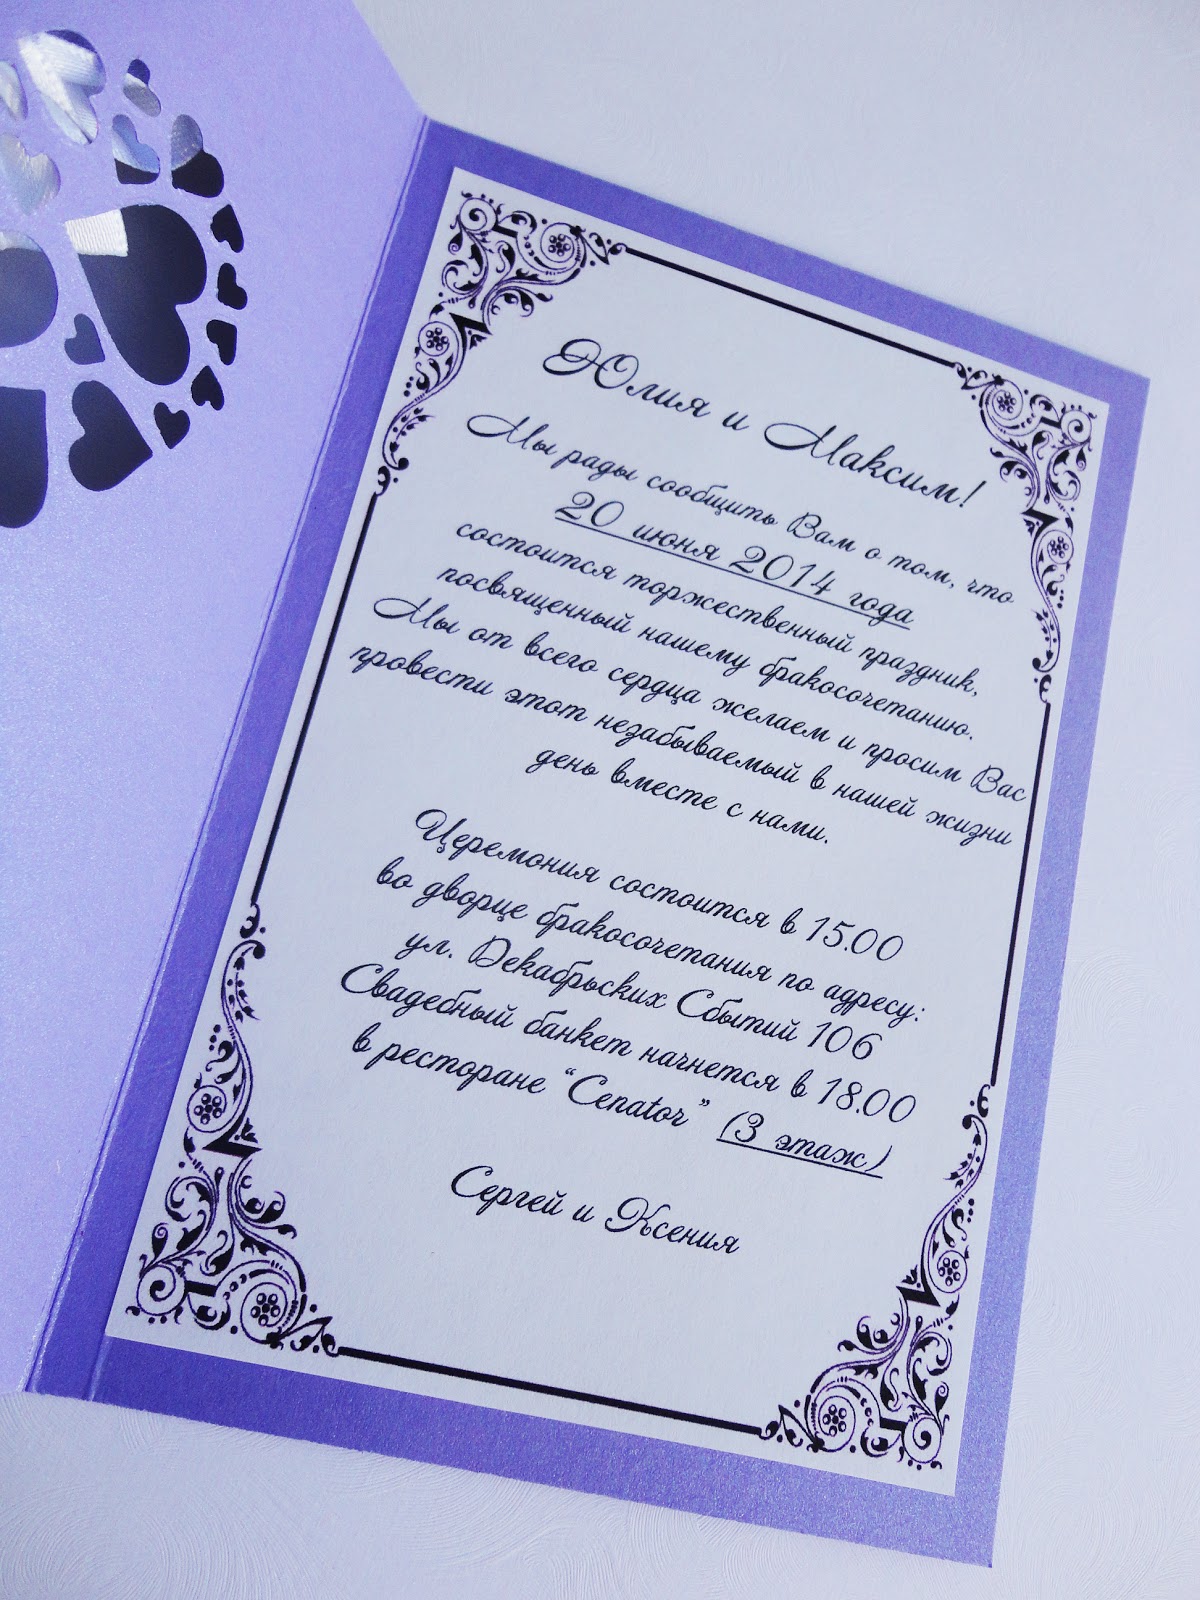 Юлия и Максим!
Мы рады сообщить Вам о том, что
20 июня 2014 года
состоится торжественный праздник,
посвященный нашему бракосочетанию.
Мы от всего сердца желаем и просим Вас
провести этот незабываемый в нашей жизни
день вместе с нами.
Церемония состоится в 15.00
во дворце бракосочетания по адресу:
ул. Декабрьских Событий 106
Свадебный банкет начнется в 18.00
в ресторане “Cenator” (3 этаж)
Сергей и Ксения